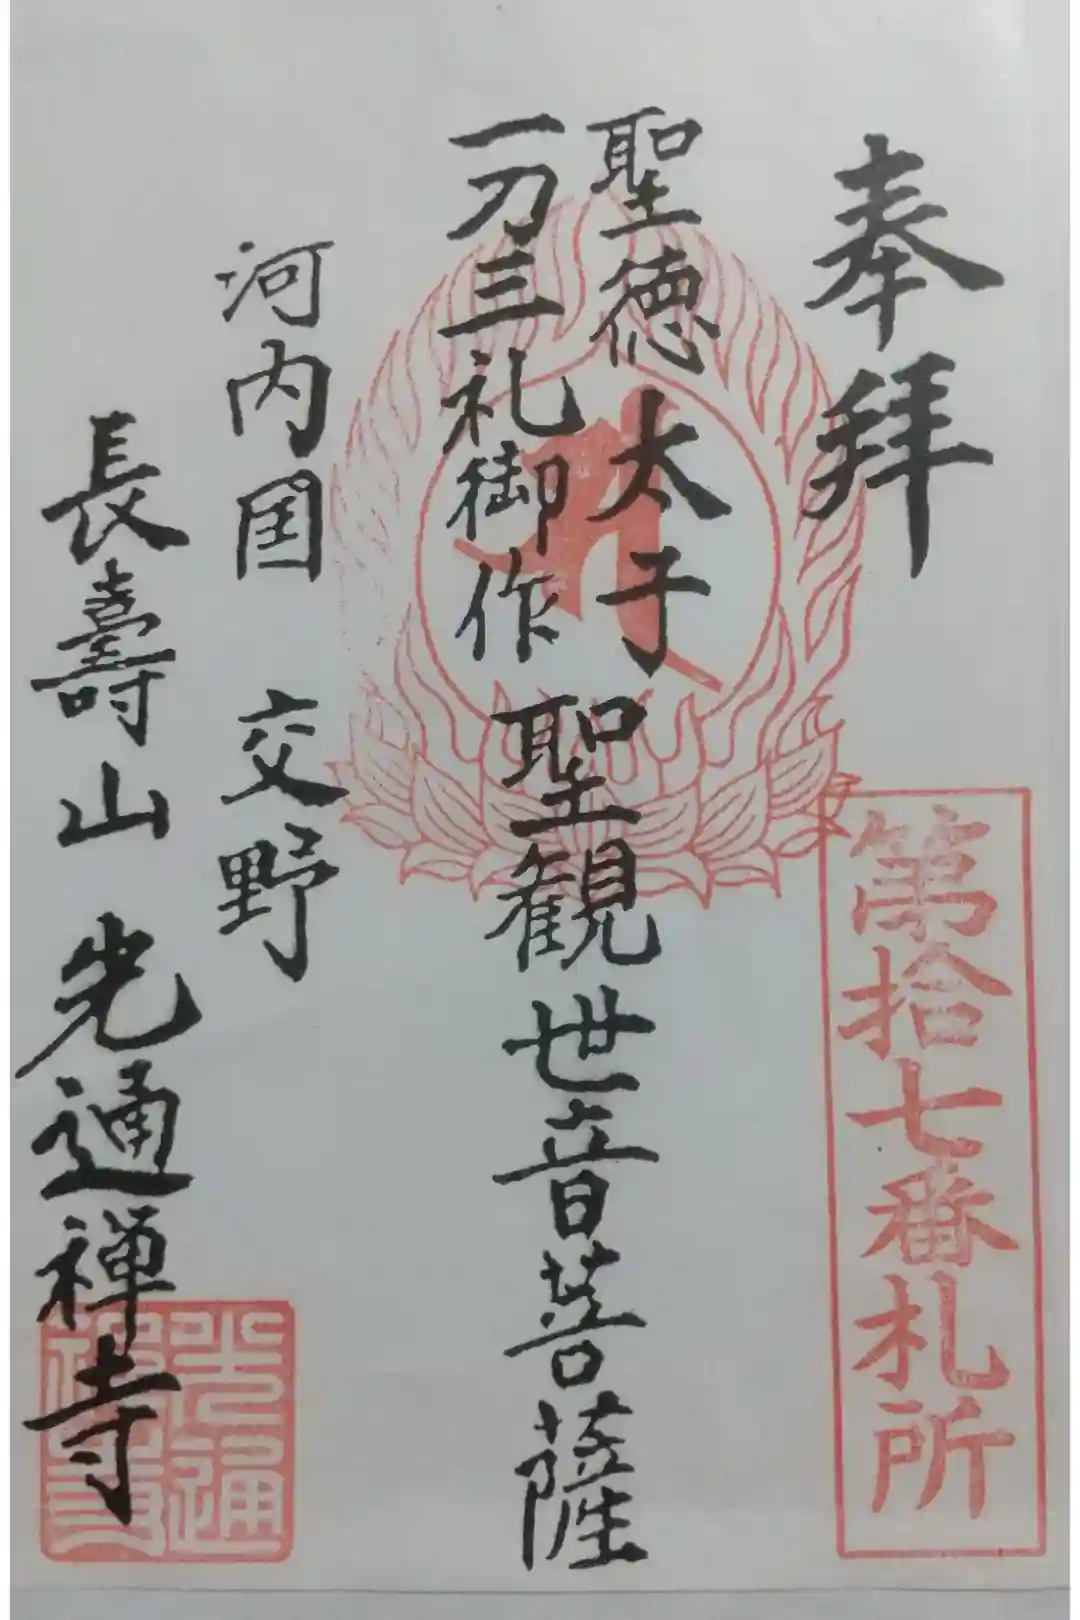 奉拝
第拾七番札所
聖徳太子
一刀三礼御作
聖観世音菩薩
河内国 交野
長壽山 光通禅寺
光通
禅寺